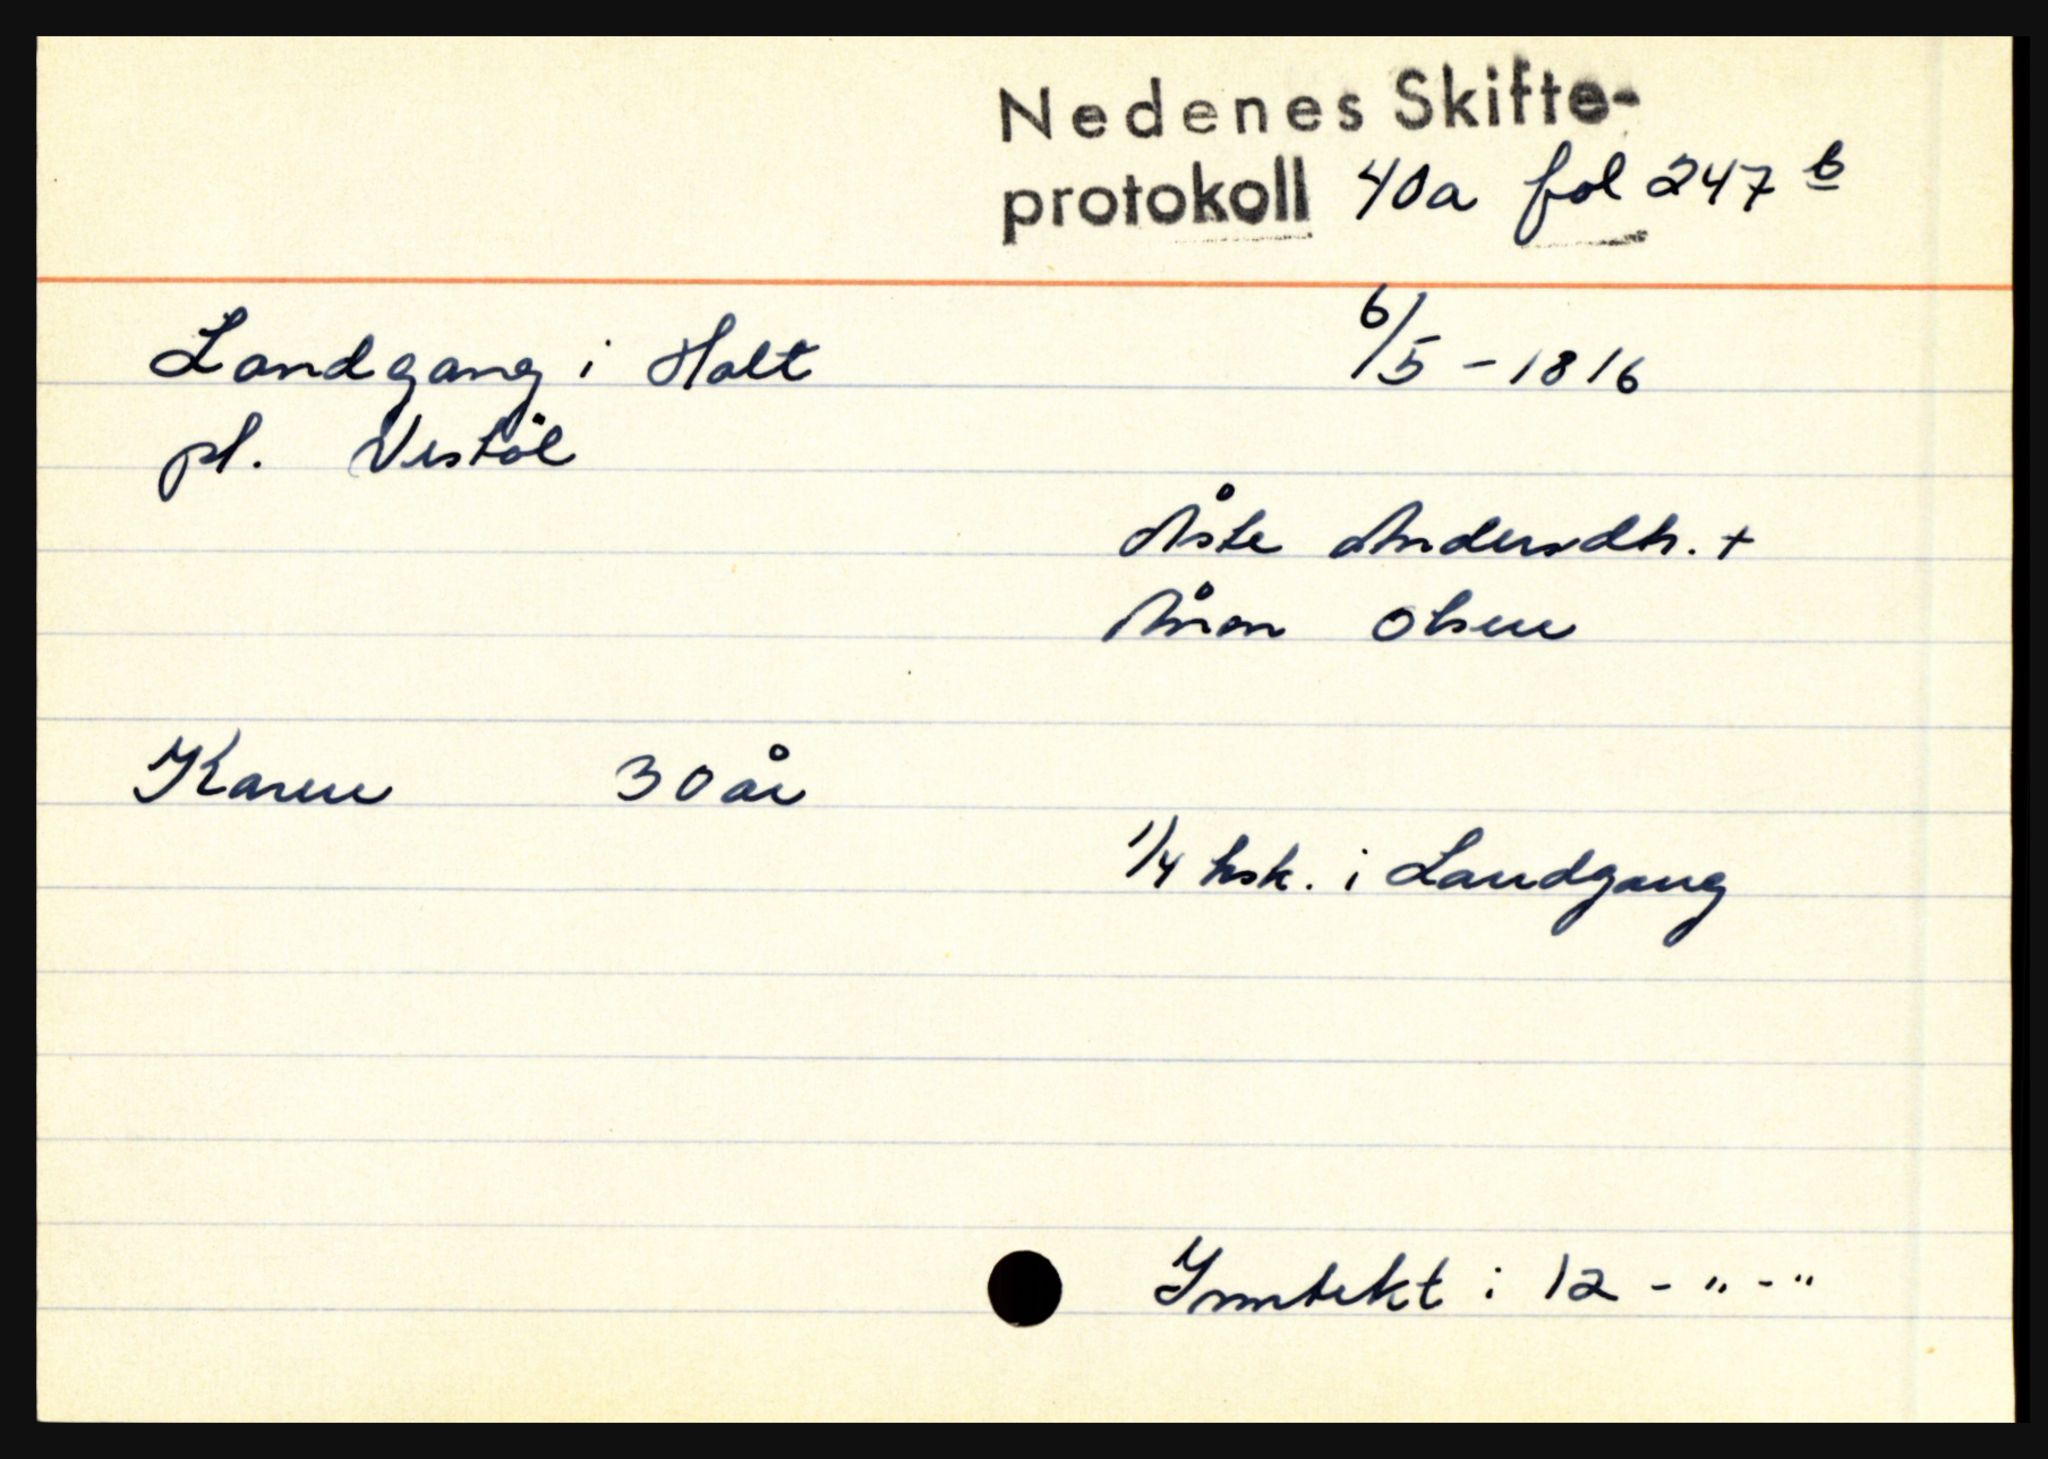 Nedenes Skifte-
protokoll 40a fol 247 b
Landgang i Holt 6/5 - 1816
pl. Vestöl
Åste Andersdtr. +
Åron Olsen
Karen 30 år
1/4 hsk. i Landgang
Inntekt : 12 - " - "